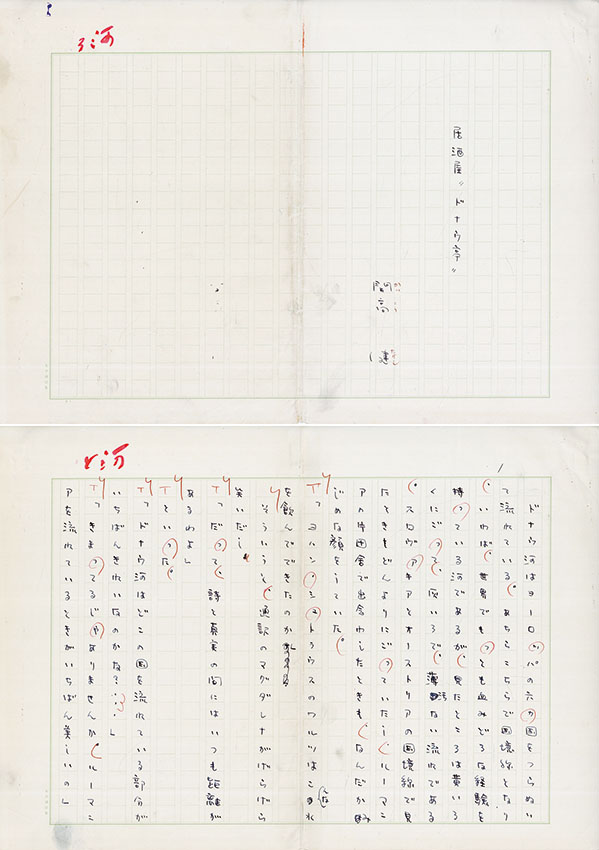 河
居酒屋〝ドナウ亭〟
開高 健
かいこう たけし
河
1
ドナウ河はヨーロッパの六カ国をつらぬい
て流れている。あちらこちらで国境線となり
、いわば、世界でもっとも血みどろな経験を
持っている河であるが、見たところは黄いろ
くにごって、いろで、薄汚ない流れである
。スロヴァキアとオーストリアの国境線で見
たときもどんよりにごっていたし、ルーマニ
アの片田舎で出会わしたときも、なんだかみ
じめな顔をしていた。
「ヨハン・シュトラウスのワルツはこんな水
を飲んでできたのか」
そういうと、通訳のマグダレナがげらげら
笑いだし、
「だって、詩と真実の間にはいつも距離が
あるわよ」
といった。
「ドナウ河はどこの国を流れている部分が
いちばんきれいなのかな?……」
「きまってるじゃありませんか。ルーマニ
アを流れているときがいちばん美しいの」